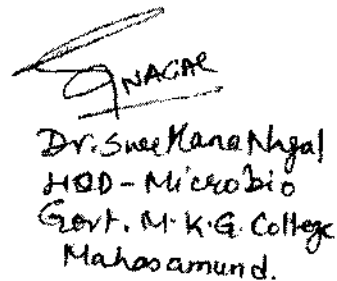 NAGAL
Dr. Snee Hana Nagal
HOD - Microbio
Govt. M.K.G. College
Mahasamund.